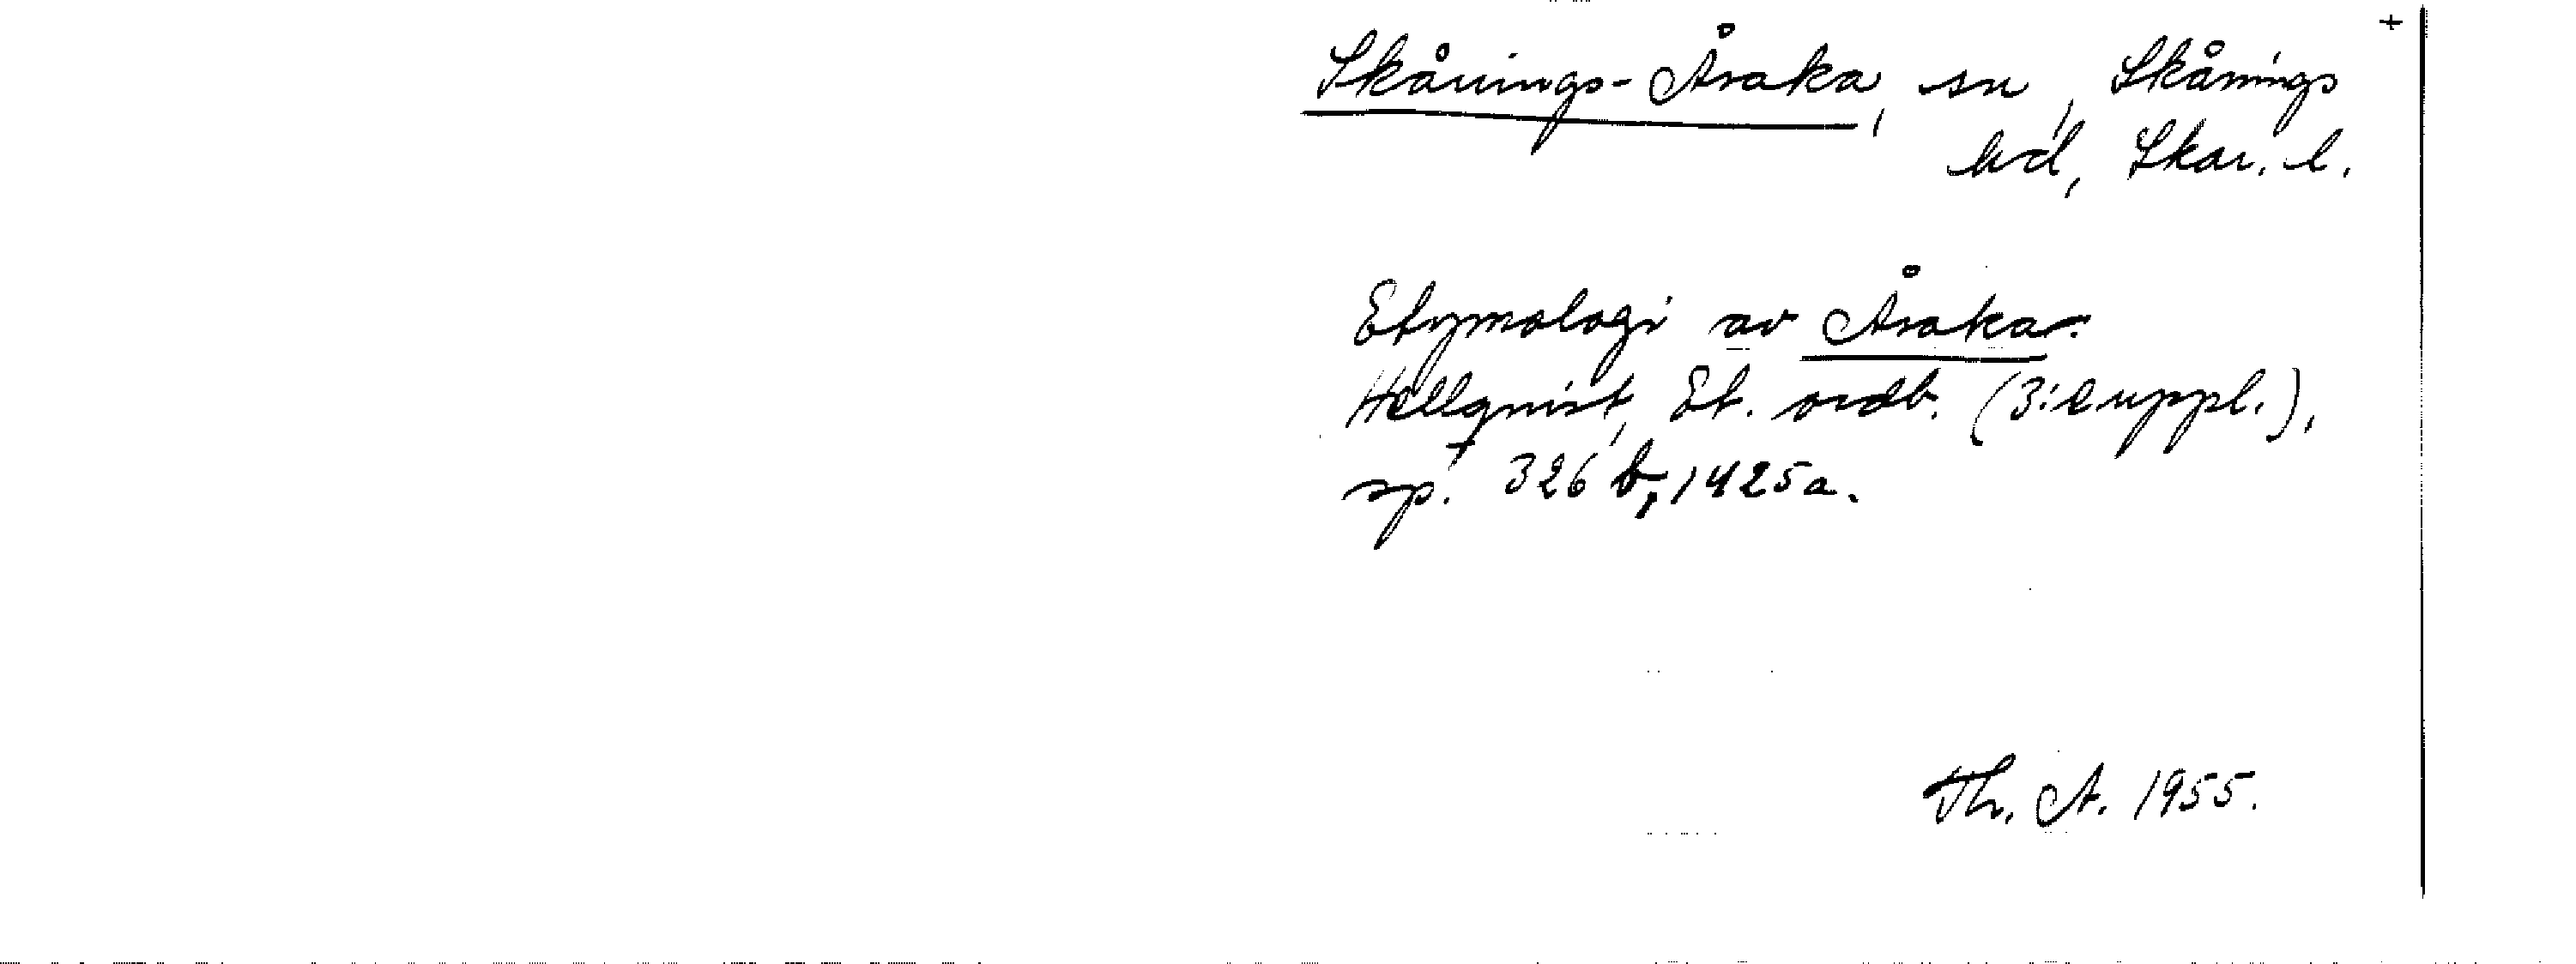 +
Skånings-Åsaka, sn, Skånings
hd, Skar. l.
Etymologi av Åsaka.
Hellquist, Et. ordb. (3:e uppl.),
sp. 326 b, 1425a.
Th. A. 1955.